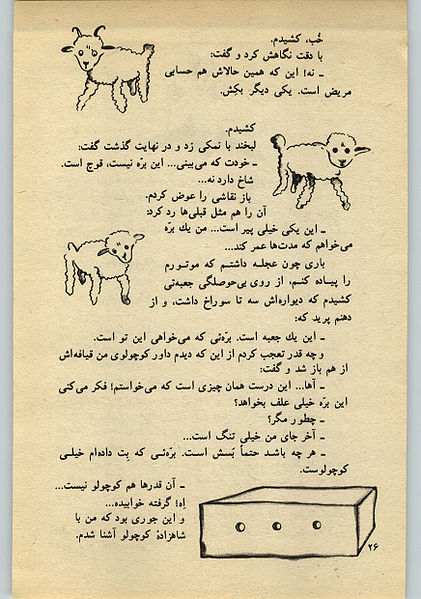 خُب، کشیدم.
با دقت نگاهش کرد و گفت:
ـ نه! این که همین حالاش هم حسابی
مریض است. یکی دیگر بکِش.
کشیدم.
لبخند با نمکی زد و در نهایت گذشت گفت:
ـ خودت که می‌بینی... این برّه نیست، قوچ است.
شاخ دارد نه...
باز نقاشی را عوض کردم.
آن را هم مثل قبلی‌ها رد کرد:
ـ این یکی خیلی پیر است... من یك برّه
می‌خواهم که مدت‌ها عمر کند...
باری چون عجله داشتم که موتورم
را پیاده کنم، از روی بی‌حوصلگی جعبه‌ئی
کشیدم که دیواره‌اش سه تا سوراخ داشت، و از
دهنم پرید که:
ـ این یك جعبه است. برّه‌ئی که می‌خواهی این تو است.
و چه قدر تعجب کردم از این که دیدم داور کوچولوی من قیافه‌اش
از هم باز شد و گفت:
ـ آها... این درست همان چیزی است که می‌خواستم! فکر می‌کنی
این برّه خیلی علف بخواهد؟
ـ چطور مگر؟
ـ آخر جای من خیلی تنگ است...
ـ هر چه باشد حتماً بَسش است. برّه‌ئی که بِت داده‌ام خیلی
کوچولوست.
ـ آن قدرها هم کوچولو نیست...
اِه! گرفته خوابیده...
و این جوری بود که من با
شاهزادهٔ کوچولو آشنا شدم.
۲۶